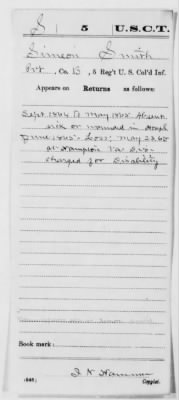 S 5 U.S.C.T.
Simeon Smith
Pvt., Co. B, 5 Reg't U. S. Col'd Inf.
Appears on Returns as follows:
Sept. 1864 to May 1865 Absent
sick or wounded in Hospl
June 1865 Loss; May 28 65
at Hampton Va Dis-
charged for Disability
Book mark:
Copyist.